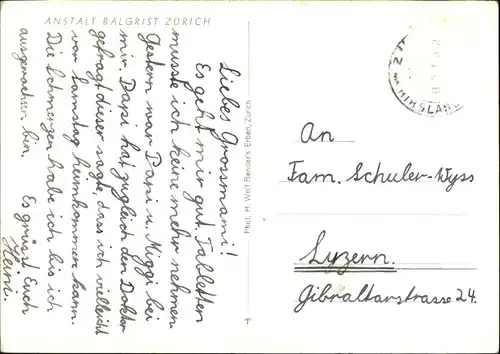 ANSTALT BALGRIST ZÜRICH
Liebes Grossmami!
Es geht mir gut. Tabletten
musste ich keine mehr nehmen.
Gestern war Papi u. Miggi bei
mir. Papi hat zugleich den Doktor
gefragt dieser sagte, dass ich vielleicht
vor Samstag heimkommen kann.
Die Schmerzen habe ich bis ich
ausgewachsen bin.
Es grüsst Euch
Heini.
Phot. H. Wolf-Bender's Erben, Zürich
An
Fam. Schuler-Wyss
Luzern.
Gibraltarstrasse 24.